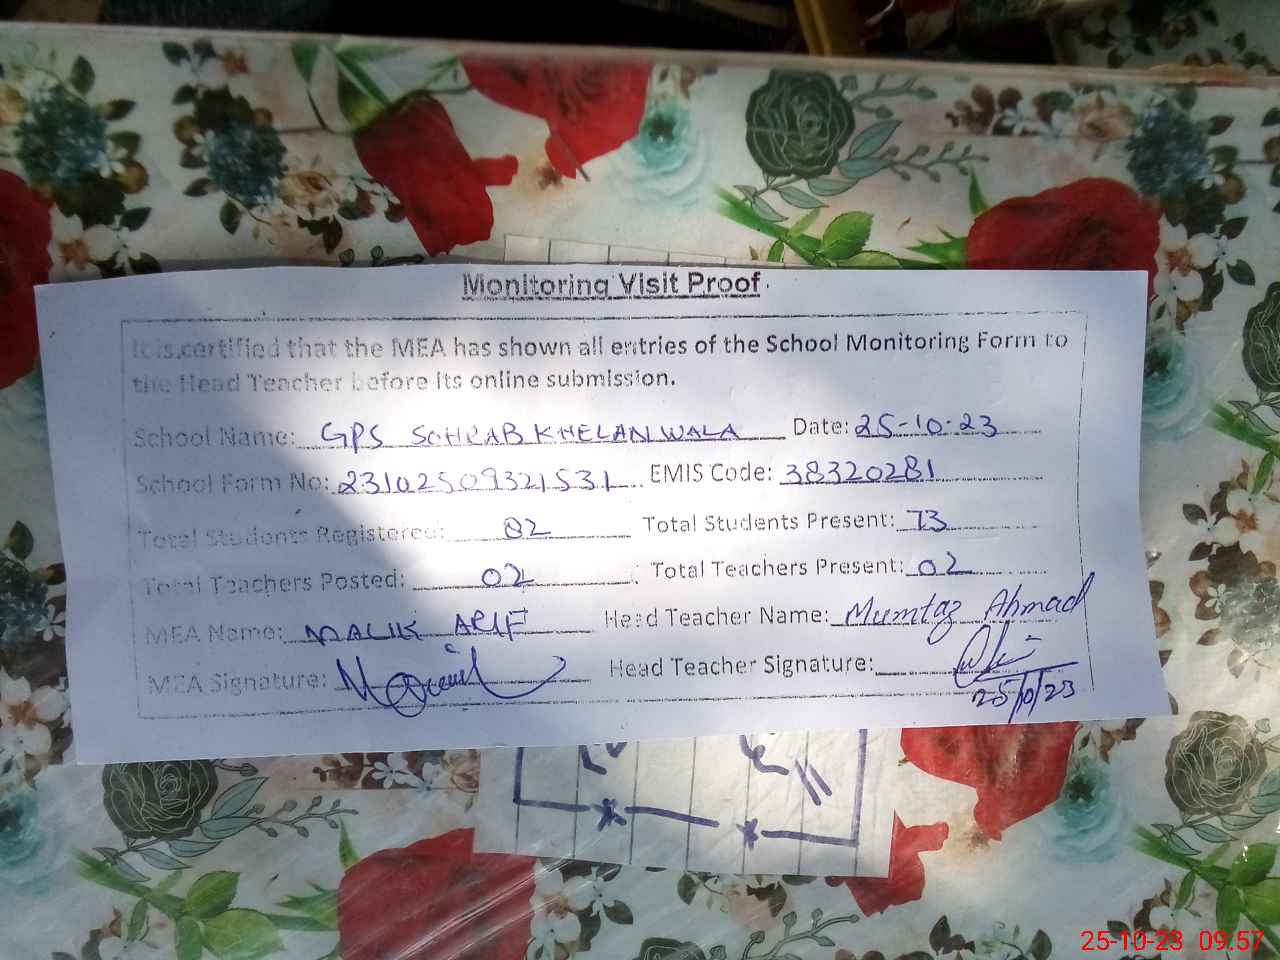 Monitoring Visit Proof
It is certified that the MEA has shown all entries of the School Monitoring Form to
the Head Teacher before its online submission.
School Name: GPS SOHRAB KHELANWALA Date: 25-10-23
School Form No: 23102509321531 EMIS Code: 38320281
Total Students Registered: 82 Total Students Present: 73
Total Teachers Posted: 02 Total Teachers Present: 02
MEA Name: MALIK ARIF Head Teacher Name: Mumtaz Ahmad
MEA Signature: Head Teacher Signature:
25/10/23
25-10-23 09:57